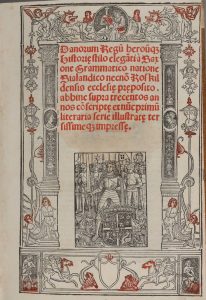 Danorum Regū heroūqȝ
Historię stilo elegāti a Saxone
Grammatico natione
Sialandico necnō Roskildensis
ecclesię pręposito,
abhinc supra trecentos annos
cōscriptę et nūc primū
literaria serie illustratę tersissimeqȝ
impressę.